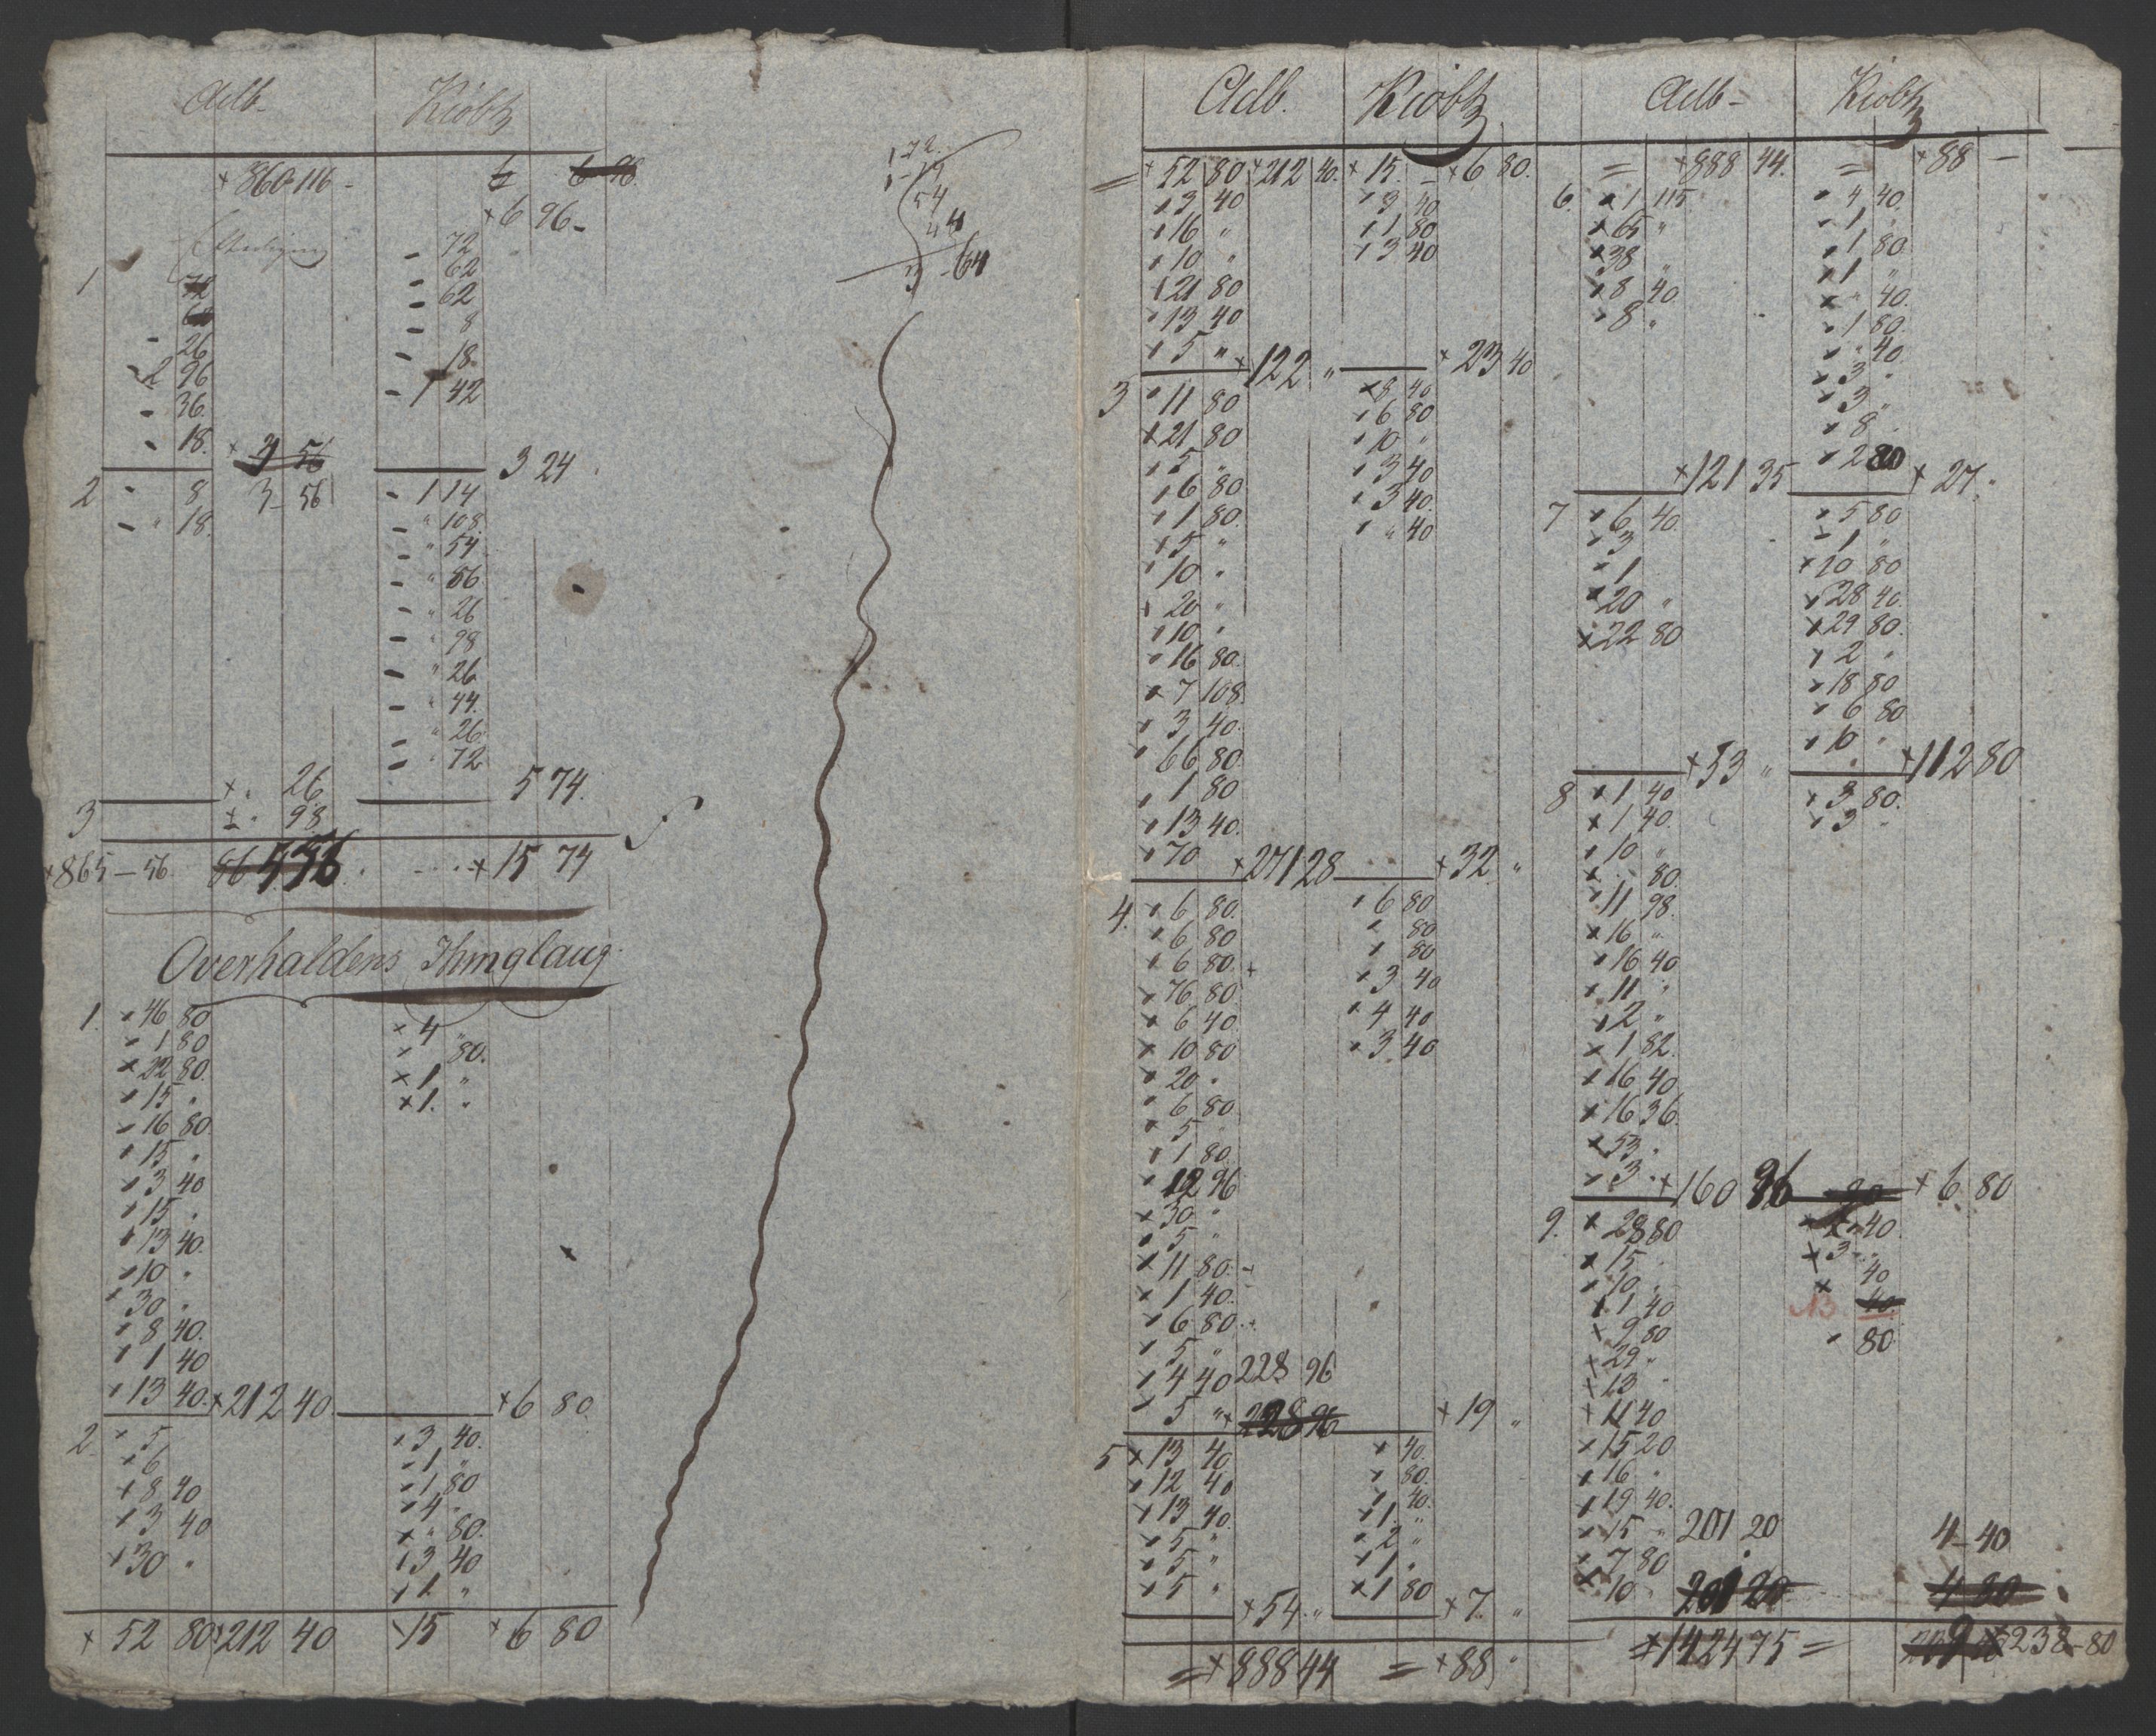 Adb. Kiøbtz
× 860 116 -
× 6 96 -
- 72
- 62
1
- 62
- 8
- 26 - 18
- 2 96 - 1 42
- 36
- 18
3 24
2 - 8 3 - 56 - 1 14
- " 18 - " 108
- " 54
- " 56
- " 26
- " 98
- " 26
- " 44
- " 26
- " 72
× " 26 5 74
3 × " 98
× 865 - 56 × 15 74
Overhaldens Thinglaug
1. × 46 80 × 4 "
× 1 80 × " 80
× 22 80 × 1 "
× 15 " × 1 "
× 16 80
× 15 "
× 3 40
× 15 "
× 13 40
× 10 "
× 30 "
× 8 40
× 1 40
× 13 40 × 212 40 × 6 80
2 × 5 × 3 40
× 6 × 1 "
× 8 40 × 1 80
× 3 40 × 4 "
× 30 " × " 80
× 3 40
× 1 "
× 52 80 × 212 40 × 15 × 6 80
172
19
54
44
3 - 64
Adb. Kiøbtz
= × 52 80 × 212 40 × 15 - × 6 80
× 3 40 × 3 40
× 16 " × 1 80
× 10 " × 3 40
× 21 80
× 13 40
× 5 " × 122 " × 23 40
3 × 11 80 × 8 40
× 21 80 × 6 80
× 5 " × 10 "
× 6 80 × 3 40
× 1 80 × 3 40
× 5 " × " 40
× 10 "
× 20 "
× 10 "
× 16 80
× 7 108
× 3 40
× 66 80
× 1 80
× 13 40
× 70 × 271 28 × 32 "
4. × 6 80 × 6 80
× 6 80 × 80
× 6 80 × 80
× 76 80 × 3 40
× 6 40 × 4 40
× 10 80 × 3 40
× 20 "
× 6 80
× 5 "
× 1 80
× 12 96
× 30 "
× 5 "
× 11 80
× 1 40
× 6 80
× 5 "
× 4 40 228 96
× 5 " × 228 96 × 19 "
5 × 13 40 × 40
× 12 40 × 80
× 13 40 × 40
× 5 " × 1 "
× 5 " × 2 "
× 5 " × 1 "
× 1 80
× 54 " × 7 "
= × 888 44 = × 88 "
Adb - Kiøbtz
= × 888 44 = × 88 -
6. × 1 115 × 4 40
× 65 " × 1 "
× 38 " × 1 80
× 8 40 × 1 "
× 8 " × " 40
× 1 80
× " 40
× 3 "
× 3 "
× 8 "
× 2 80
× 121 35 × 27 "
7 × 6 40 × 5 80
× 3 × 1 "
× 1 × 10 80
× 20 " × 28 40
× 22 80 × 29 80
× 2 "
× 18 80
× 6 80
× 10 "
× 53 " × 112 80
8 × 1 40 × 3 80
× 1 40 × 3 "
× 10 "
× " 80
× 11 98
× 16 "
× 16 40
× 11 "
× 2 "
× 1 82
× 16 40
× 16 36
× 53 "
× 3 " × 160 96 × 6 80
9. × 28 80 × " 40
× 15 " × 3 "
× 10 " × 40
× 1 40
× 9 80 × 80
× 29 "
× 13 "
× 11 40
× 15 20
× 16 "
× 19 40
× 15 " 201 20 4 - 40
× 7 80
× 10 " 201 20 4 80
= × 1424 75 = × 238 - 80